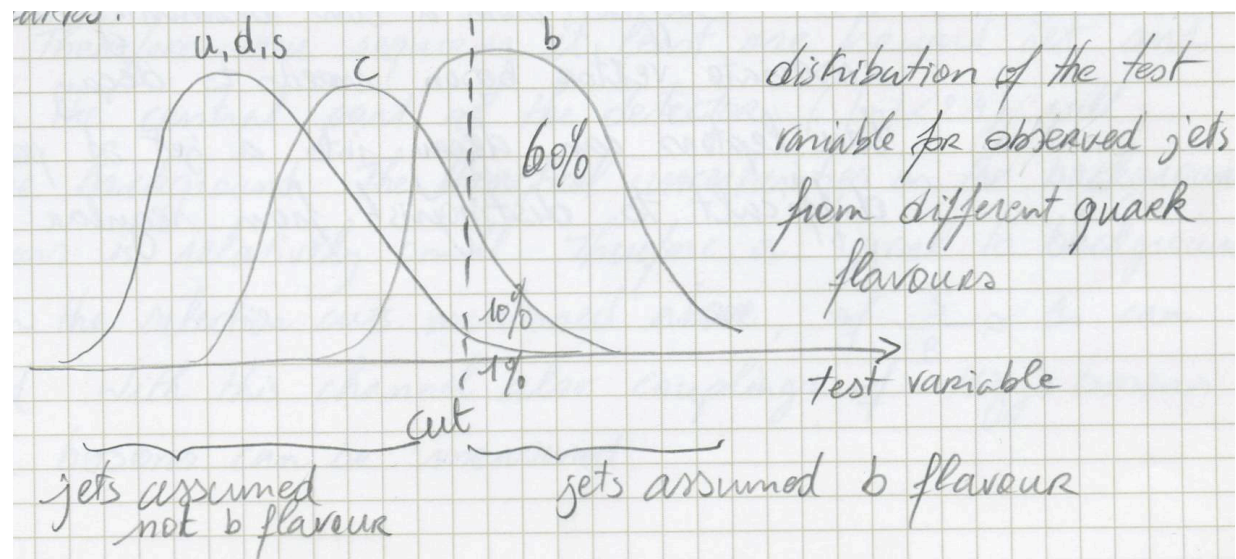 u,d,s
c
b
60%
10%
1%
distribution of the test
variable for observed jets
from different quark
flavours
test variable
cut
jets assumed
not b flavour
jets assumed b flavour